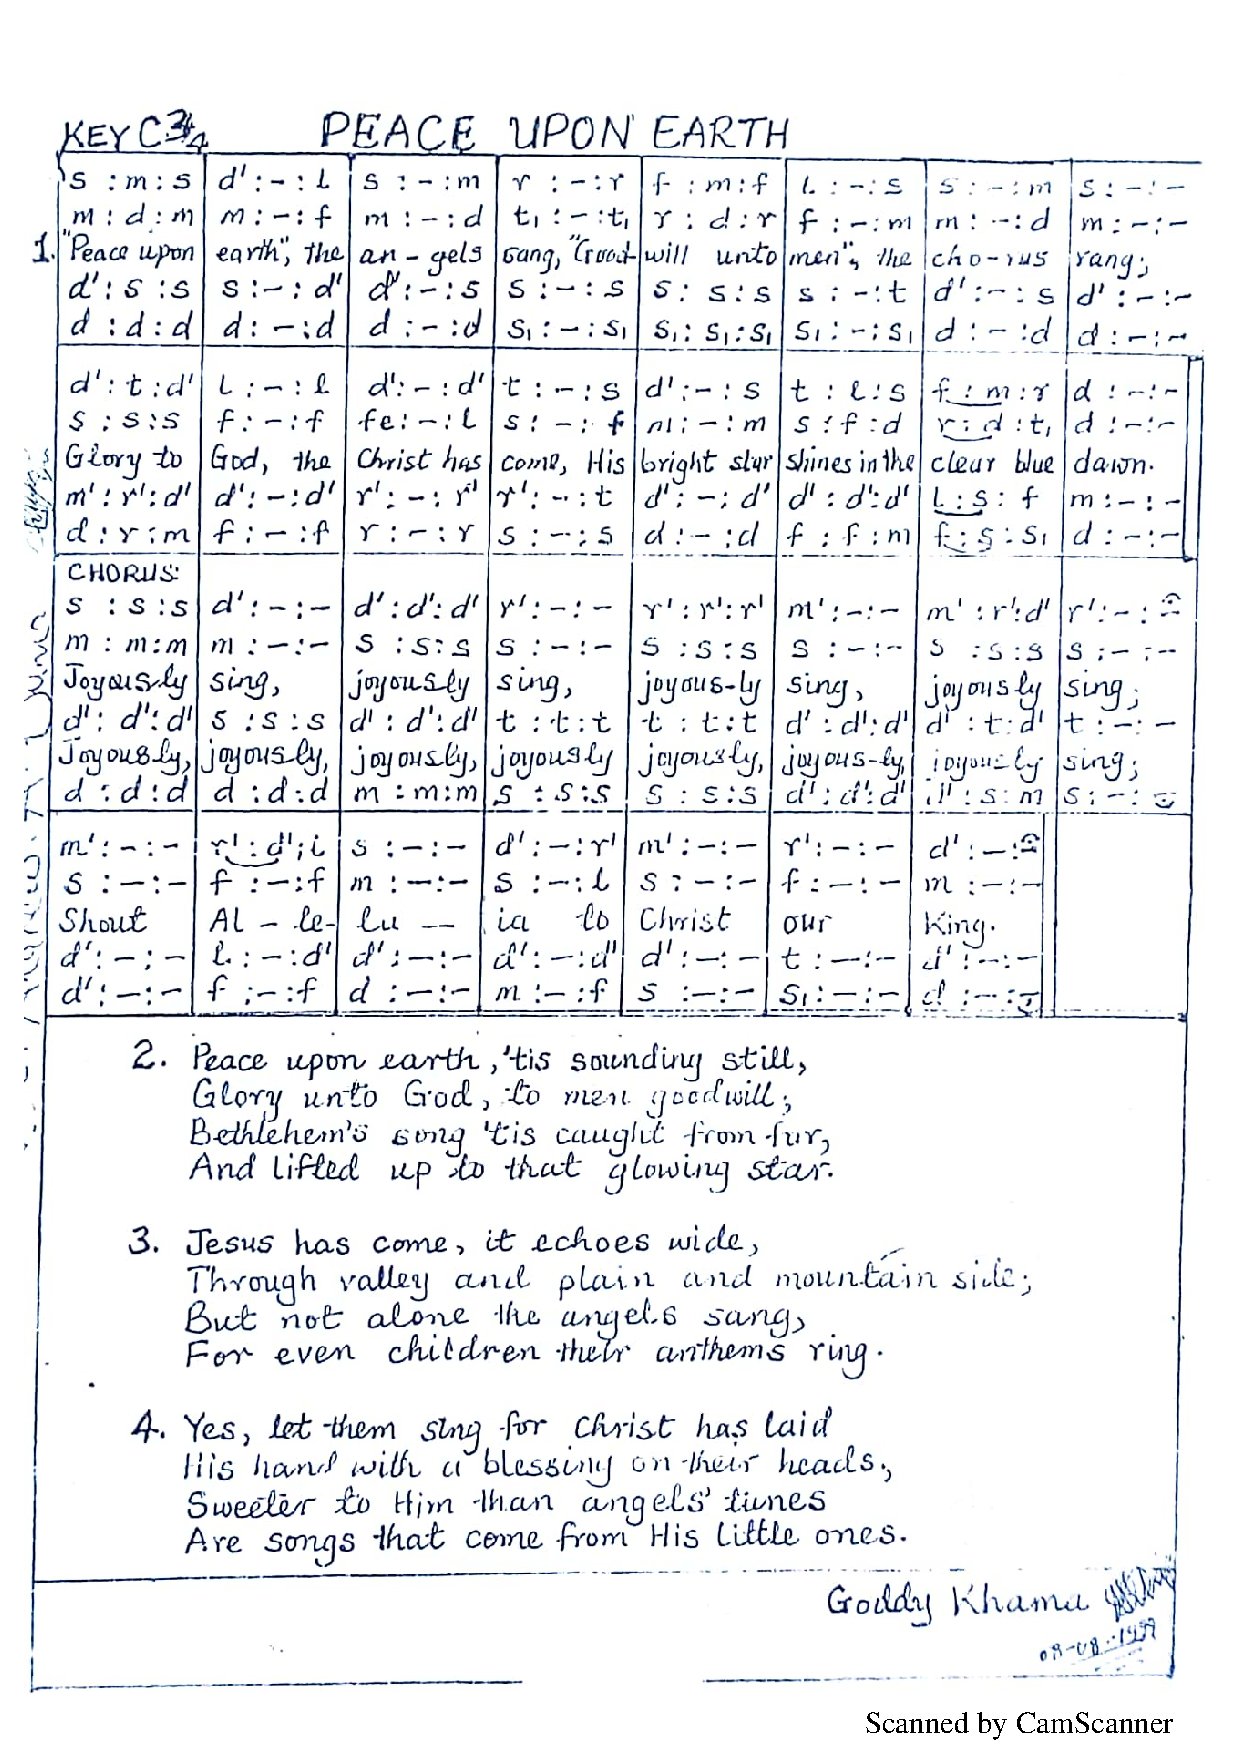 KEY C 3/4 PEACE UPON EARTH
s : m : s | d' : - : l | s : - : m | r : - : r | f : m : f | l : - : s | s : - : m | s : - : -
m : d : m | m : - : f | m : - : d | t₁ : - : t₁ | r : d : r | f : - : m | m : - : d | m : - : -
1. "Peace upon earth", the an - gels sang, "Good will unto men", the cho - rus rang;
d' : s : s | s : - : d' | d' : - : s | s : - : s | s : s : s | s : - : t | d' : - : s | d' : - : -
d : d : d | d : - : d | d : - : d | s₁ : - : s₁ | s₁ : s₁ : s₁ | s₁ : - : s₁ | d : - : d | d : - : -
d' : t : d' | l : - : l | d' : - : d' | t : - : s | d' : - : s | t : l : s | f : m : r | d : - : -
s : s : s | f : - : f | fe : - : l | s : - : f | m : - : m | s : f : d | r : d : t₁ | d : - : -
Glory to God, the Christ has come, His bright star shines in the clear blue dawn.
m' : r' : d' | d' : - : d' | r' : - : r' | r' : - : t | d' : - : d' | d' : d' : d' | l : s : f | m : - : -
d : r : m | f : - : f | r : - : r | s : - : s | d : - : d | f : f : m | f : s : s₁ | d : - : -
CHORUS:
s : s : s | d' : - : - | d' : d' : d' | r' : - : - | r' : r' : r' | m' : - : - | m' : r' : d' | r' : - : -
m : m : m | m : - : - | s : s : s | s : - : - | s : s : s | s : - : - | s : s : s | s : - : -
Joyously sing, joyously sing, joyous-ly sing, joyously sing;
d' : d' : d' | s : s : s | d' : d' : d' | t : t : t | t : t : t | d' : d' : d' | d' : t : d' | t : - : -
Joyously, joyously, joyously, joyously joyously, joyous-ly, joyously sing;
d : d : d | d : d : d | m : m : m | s : s : s | s : s : s | d' : d' : d' | d' : s : m | s : - : -
m' : - : - | r' : d' : l | s : - : - | d' : - : r' | m' : - : - | r' : - : - | d' : - : -
s : - : - | f : - : f | m : - : - | s : - : l | s : - : - | f : - : - | m : - : -
Shout Al - le- lu - ia to Christ our King.
d' : - : - | l : - : d' | d' : - : - | d' : - : d' | d' : - : - | t : - : - | d' : - : -
d' : - : - | f : - : f | d : - : - | m : - : f | s : - : - | s₁ : - : - | d : - : -
2. Peace upon earth, 'tis sounding still,
Glory unto God, to men goodwill;
Bethlehem's song 'tis caught from far,
And lifted up to that glowing star.
3. Jesus has come, it echoes wide,
Through valley and plain and mountain side;
But not alone the angels sang,
For even children their anthems ring.
4. Yes, let them sing for Christ has laid
His hand with a blessing on their heads,
Sweeter to Him than angels' tunes
Are songs that come from His little ones.
Goddy Khama
Scanned by CamScanner